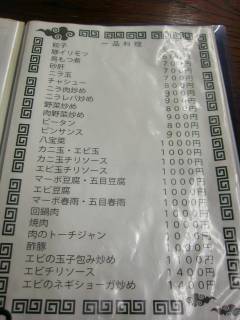 一品料理
餃子
豚イリモツ
鳥もつ煮
砂肝
ニラ玉 700円
チャシュー 700円
ニラ肉炒め 800円
ニラレバ炒め 800円
野菜炒め 800円
肉野菜炒め 900円
ピータン 800円
ビンサンス 900円
八宝菜 1000円
カニ玉・エビ玉 1000円
カニ玉チリソース 1000円
エビ玉チリソース 1000円
マーボ豆腐・五目豆腐 1000円
エビ豆腐 1000円
マーボ春雨・五目春雨 1000円
回鍋肉 1000円
焼肉 1000円
肉のトーチジャン 1000円
酢豚 1000円
エビの玉子包み炒め 1400円
エビチリソース 1400円
エビのネギショーガ炒め 1400円